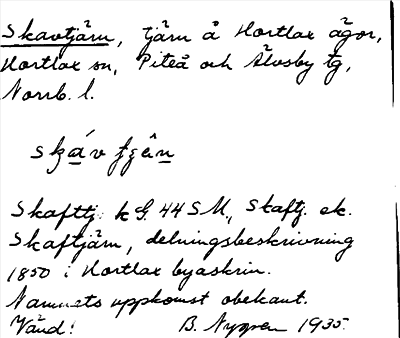 Skavtjärn, tjärn å Hortlax ägor,
Hortlax sn, Piteå och Älvsby tg,
Norrb. l.
Skafttj. k G. 44 SM., Skaftj. ek.
Skaftjärn, delningsbeskrivning
1850 i Hortlax byaskrin.
Namnets uppkomst obekant.
Vänd! B. Nygren 1935.